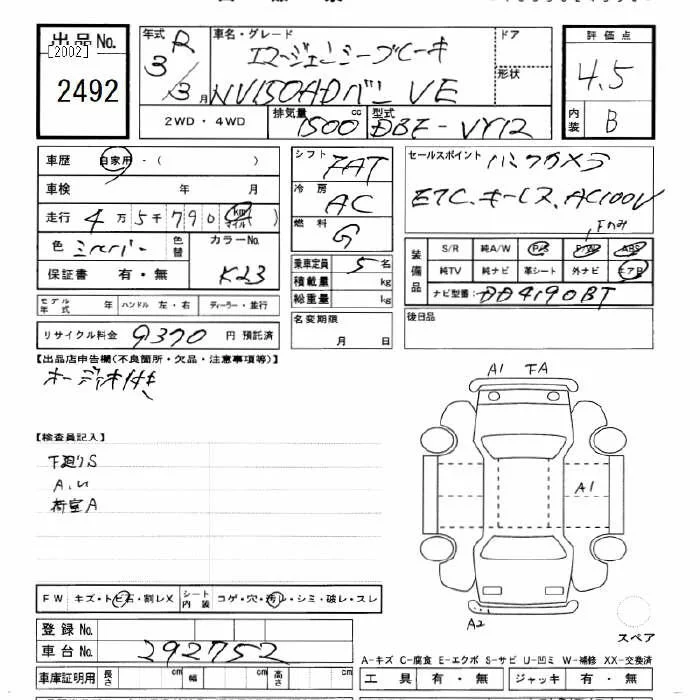 出品No.
[2002]
2492
年式 R
3/3月
車名・グレード
エマージェンシーブレーキ
NV150ADバン VE
ドア
形状
評価点
4.5
内装 B
2WD・4WD
排気量 1500 cc
型式 DBF-VY12
車歴 自家用-( )
車検 年 月
走行 4万5千790 km マイル ( )
色 シルバー 色替
カラーNo. K23
保証書 有・無
シフト FAT
冷房 AC
燃料 G
セールスポイント バックカメラ
ETC、キーレス、AC100V
Fのみ
乗車定員 5名
積載量 kg
総重量 kg
装備品
S/R 純A/W P/S P/W ABS
純TV 純ナビ 革シート 外ナビ エアB
ナビ型番: DD4190BT
モデル年式 年 ハンドル 左・右 ディーラー・並行
リサイクル料金 9370 円 預託済
名変期限
月 日
後日品
【出品店申告欄(不良箇所・欠品・注意事項等)】
オーディオ付き
A1 FA
【検査員記入】
下廻りS
荷室A
A1
A2
スペア
FW キズ・トビ石・割レX シート内装 コゲ・穴・汚レ・シミ・破レ・スレ
登録No.
車台No. 292752
A-キズ C-腐食 E-エクボ S-サビ U-凹ミ W-補修 XX-交換済
車庫証明用 長さ cm 幅 cm 高さ cm
工具 有・無 ジャッキ 有・無